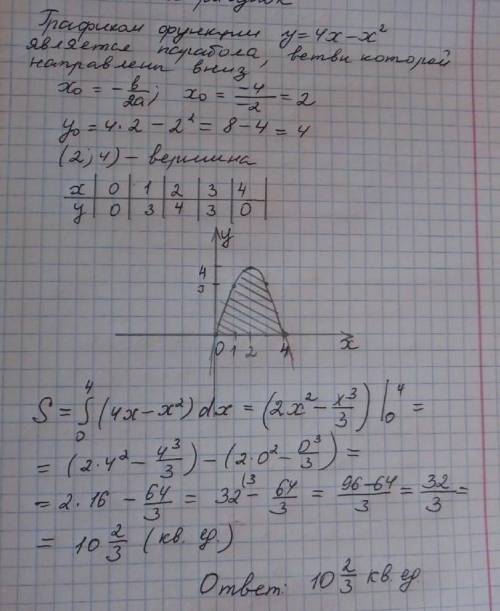 Графиком функции y=4x-x²
является парабола, ветви которой
направлены вниз
x₀ = -b/2a; x₀ = -4/-2 = 2
y₀ = 4·2 - 2² = 8-4 = 4
(2; 4) - вершина
x | 0 | 1 | 2 | 3 | 4 |
y | 0 | 3 | 4 | 3 | 0 |
y
4
3
0 1 2 4 x
S = ∫₀⁴ (4x-x²) dx = (2x² - x³/3) |₀⁴ =
= (2·4² - 4³/3) - (2·0² - 0³/3) =
= 2·16 - 64/3 = 32⁽³ - 64/3 = 96-64/3 = 32/3 =
= 10 2/3 (кв. ед.)
Ответ: 10 2/3 кв. ед